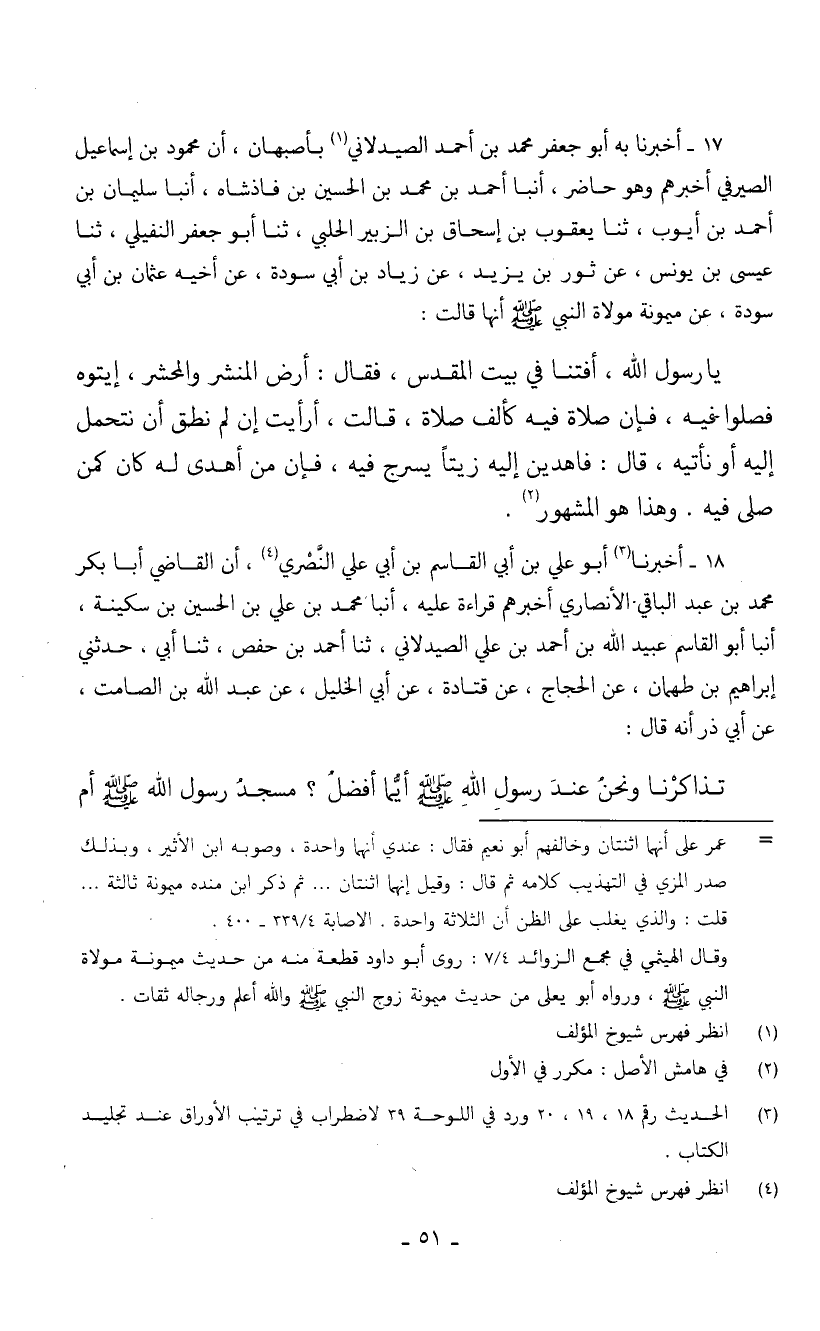 ١٧ ـ أخبرنا به أبو جعفر محمد بن أحمد الصيدلاني(١) بأصبهان ، أن محمود بن إسماعيل
الصيرفي أخبرهم وهو حاضر ، أنبا أحمد بن محمد بن الحسين بن فاذشاه ، أنبا سليمان بن
أحمد بن أيوب ، ثنا يعقوب بن إسحاق بن الزبير الحلبي ، ثنا أبو جعفر النفيلي ، ثنا
عيسى بن يونس ، عن ثور بن يزيد ، عن زياد بن أبي سودة ، عن أخيه عثمان بن أبي
سودة ، عن ميمونة مولاة النبي ﷺ أنها قالت :
يا رسول الله ، أفتنا في بيت المقدس ، فقال : أرض المنشر والمحشر ، إيتوه
فصلوا فيه ، فإن صلاة فيه كألف صلاة ، قالت ، أرأيت إن لم نطق أن نتحمل
إليه أو نأتيه ، قال : فاهدين إليه زيتاً يسرج فيه ، فإن من أهدى له كان كمن
صلى فيه . وهذا هو المشهور(٢) .
١٨ ـ أخبرنا(٣) أبو علي بن أبي القاسم بن أبي علي النَّصْري(٤) ، أن القاضي أبا بكر
محمد بن عبد الباقي الأنصاري أخبرهم قراءة عليه ، أنبا محمد بن علي بن الحسين بن سكينة ،
أنبا أبو القاسم عبيد الله بن أحمد بن علي الصيدلاني ، ثنا أحمد بن حفص ، ثنا أبي ، حدثني
إبراهيم بن طهمان ، عن الحجاج ، عن قتادة ، عن أبي الخليل ، عن عبد الله بن الصامت ،
عن أبي ذر أنه قال :
تذاكرْنا ونحنُ عندَ رسولِ اللهِ ﷺ أيُّما أفضلُ ؟ مسجدُ رسول الله ﷺ أم
= عمر على أنها اثنتان وخالفهم أبو نعيم فقال : عندي أنها واحدة ، وصوبه ابن الأثير ، وبذلك
صدر المزي في التهذيب كلامه ثم قال : وقيل إنها اثنتان ... ثم ذكر ابن منده ميمونة ثالثة ...
قلت : والذي يغلب على الظن أن الثلاثة واحدة . الاصابة ٣٣٩/٤ ـ ٤٠٠ .
وقال الهيثمي في مجمع الزوائد ٧/٤ : روى أبو داود قطعة منه من حديث ميمونة مولاة
النبي ﷺ ، ورواه أبو يعلى من حديث ميمونة زوج النبي ﷺ والله أعلم ورجاله ثقات .
(١) انظر فهرس شيوخ المؤلف
(٢) في هامش الأصل : مكرر في الأول
(٣) الحديث رقم ١٨ ، ١٩ ، ٢٠ ورد في اللوحة ٣٩ لاضطراب في ترتيب الأوراق عند تجليد
الكتاب .
(٤) انظر فهرس شيوخ المؤلف
ـ ٥١ ـ